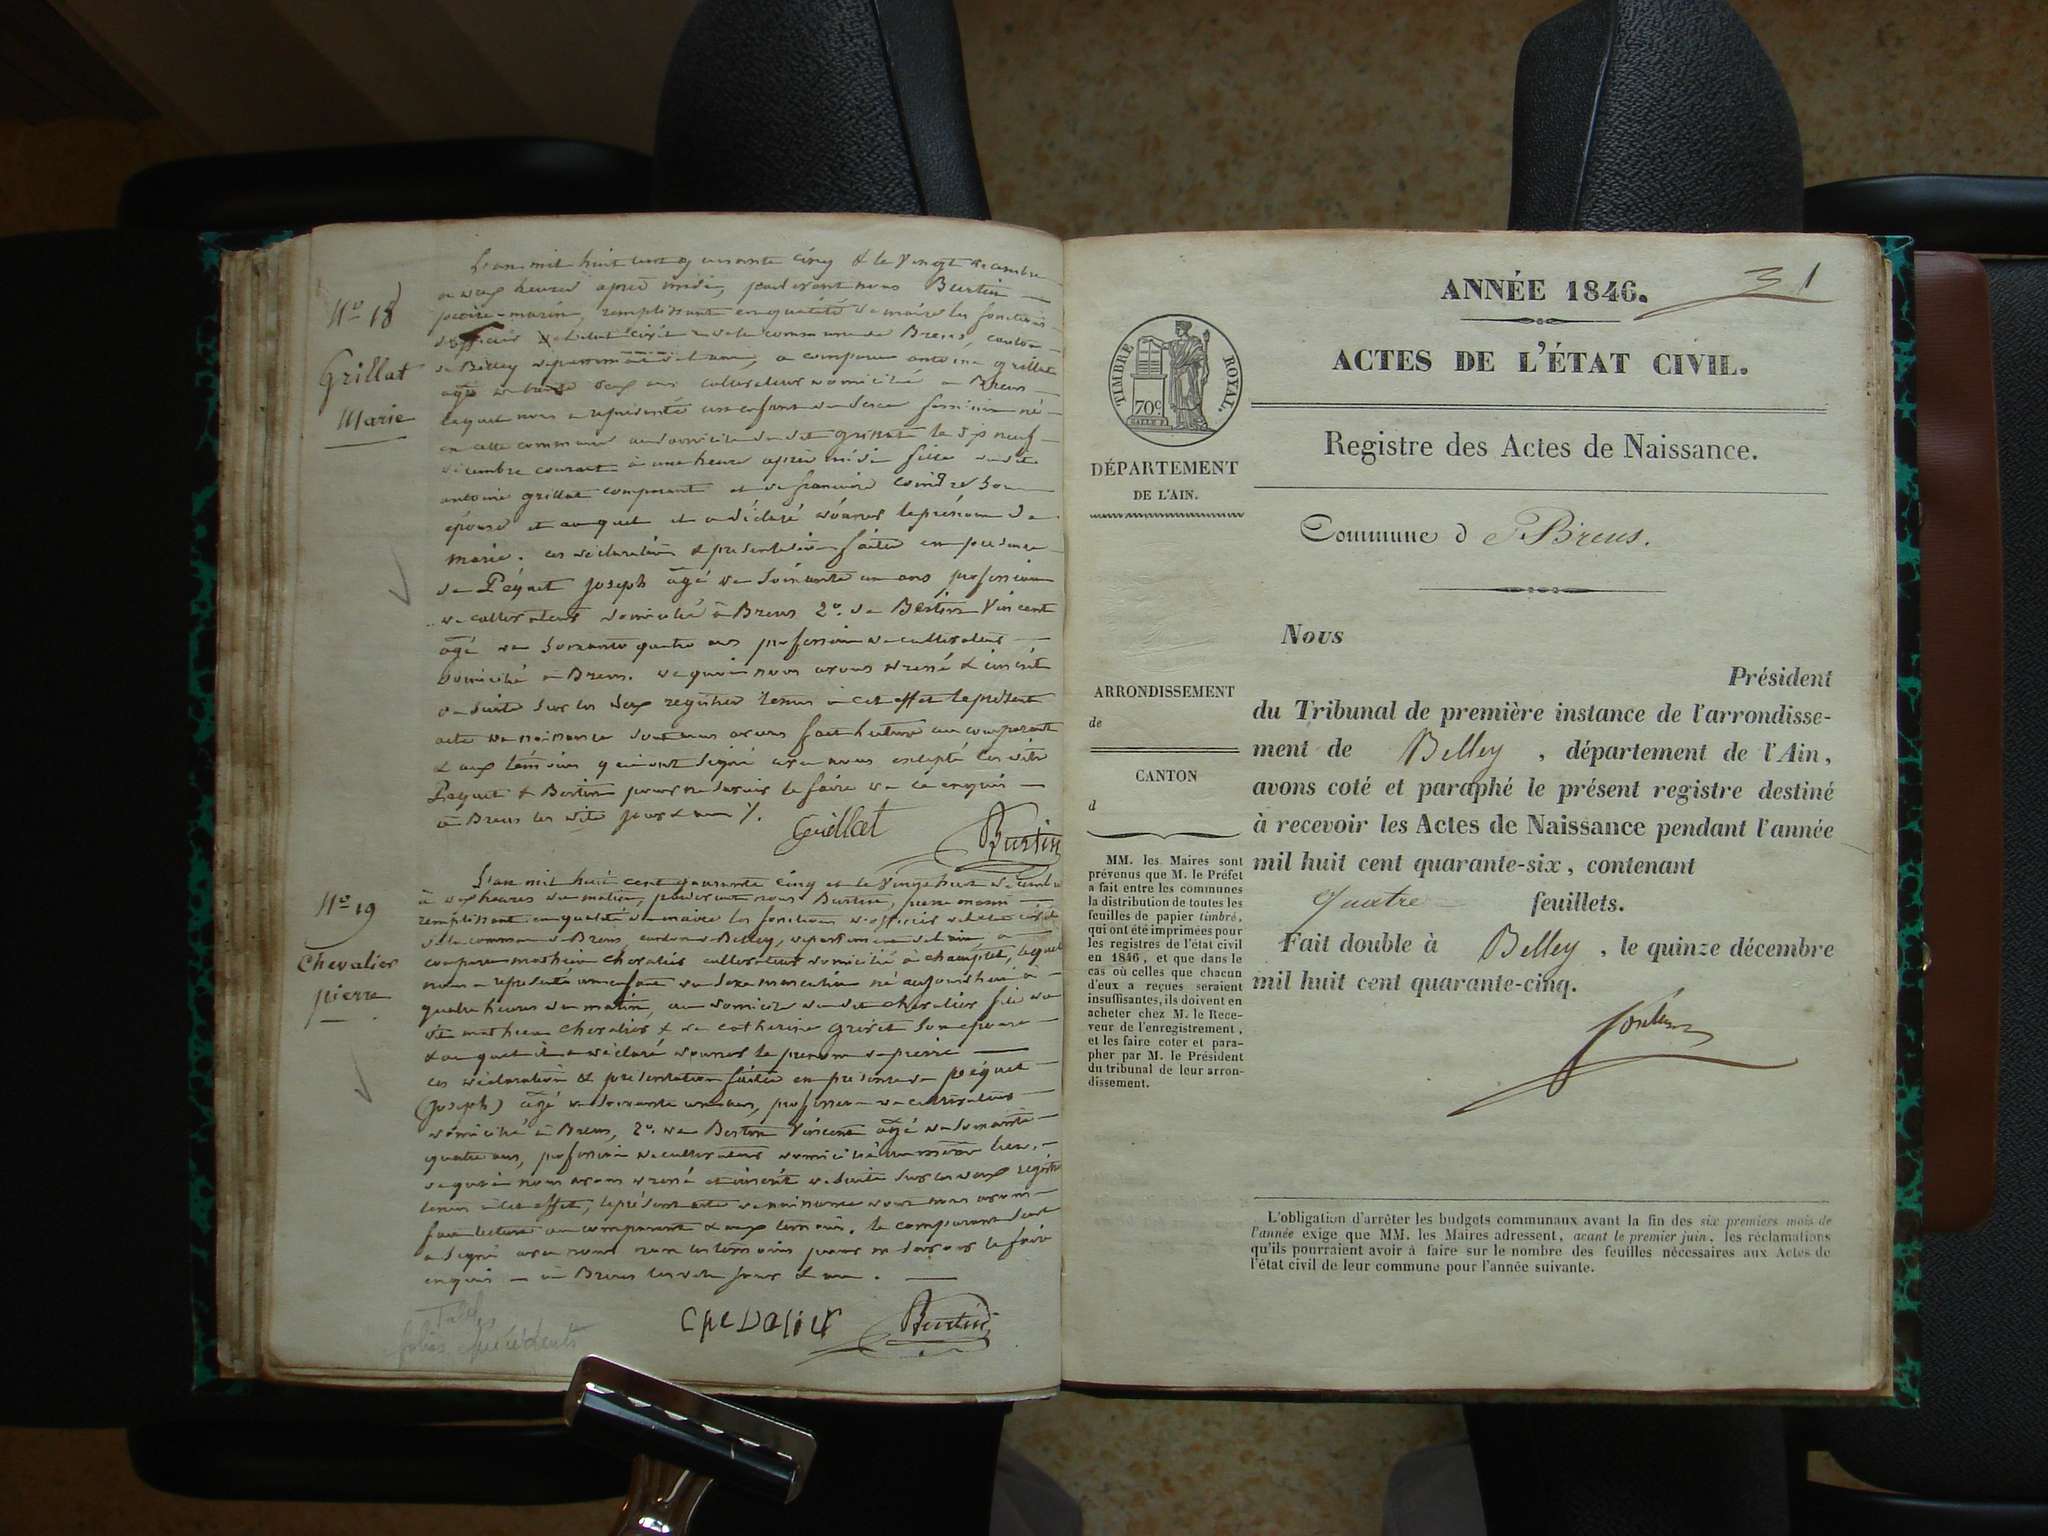 N° 18
Grillat
Marie
L'an mil huit cent quarante cinq & le vingt décembre
à deux heures après midi, pardevant nous Burtin
pierre-marin, remplissant en qualité de maire les fonctions
d'officier de l'état civil de la commune de Brens, canton
de Belley département de l'ain, a comparu antoine grillat
âgé de deux ans cultivateur domicilié à Brens
lequel nous a représenté un enfant du sexe féminin né
en cette commune au domicile du dit grillat le dix neuf
décembre courant à une heure après midi fille dudit
antoine grillat comparant et de françoise son
épouse et auquel il a déclaré donner le prénom de
marie. ces déclaration & présentation faites en présence
de Péquet joseph âgé de soixante un ans profession
de cultivateur domicilié à Brens 2°. de Berton Vincent
âgé de soixante quatre ans profession de cultivateur
domicilié à Brens. de quoi nous avons dressé & inscrit
de suite sur les deux registres tenus à cet effet le présent
acte de naissance dont nous avons fait lecture au comparant
& aux témoins qui ont signé avec nous excepté les dits
Péquet & Berton pour ne savoir le faire de ce enquis
à Brens les dits jour & an %.
Grillat
Burtin
N° 19
Chevalier
pierre
L'an mil huit cent quarante cinq et le vingt huit décembre
à heures du matin, pardevant nous Burtin, pierre marin
remplissant en qualité de maire les fonctions d'officier de l'état civil
de la commune de Brens, canton de Belley, département de l'ain, a
comparu mathieu chevalier cultivateur domicilié à champtel, lequel
nous a représenté un enfant du sexe masculin né aujourd'hui à
quatre heures du matin, au domicile du dit chevalier fils du
dit mathieu chevalier & de catherine son épouse
& auquel il a déclaré donner le prénom de pierre
ces déclaration & présentation faites en présence de péquet
(joseph) âgé de soixante un ans, profession de cultivateur
domicilié à Brens, 2°. de Berton Vincent âgé de soixante
quatre ans, profession de cultivateur domicilié au même lieu.
de quoi nous avons dressé et inscrit de suite sur les deux registres
tenus à cet effet, le présent acte de naissance dont nous avons
fait lecture au comparant & aux témoins. le comparant seul
a signé avec nous non les témoins pour ne savoir le faire
enquis à Brens les dits jour & an.
CHEVALIER
Burtin
Table
folios précédents
31
ANNÉE 1846.
ACTES DE L'ÉTAT CIVIL.
Registre des Actes de Naissance.
TIMBRE ROYAL.
70c
DÉPARTEMENT
DE L'AIN.
ARRONDISSEMENT
de
CANTON
d
MM. les Maires sont
prévenus que M. le Préfet
a fait entre les communes
la distribution de toutes les
feuilles de papier timbré,
qui ont été imprimées pour
les registres de l'état civil
en 1846, et que dans le
cas où celles que chacun
d'eux a reçues seraient
insuffisantes, ils doivent en
acheter chez M. le Rece-
veur de l'enregistrement,
et les faire coter et para-
pher par M. le Président
du tribunal de leur arron-
dissement.
Commune d e Brens.
Nous
Président
du Tribunal de première instance de l'arrondisse-
ment de Belley, département de l'Ain,
avons coté et paraphé le présent registre destiné
à recevoir les Actes de Naissance pendant l'année
mil huit cent quarante-six, contenant
quatre feuillets.
Fait double à Belley, le quinze décembre
mil huit cent quarante-cinq.
L'obligation d'arrêter les budgets communaux avant la fin des six premiers mois de
l'année exige que MM. les Maires adressent, avant le premier juin, les réclamations
qu'ils pourraient avoir à faire sur le nombre des feuilles nécessaires aux Actes de
l'état civil de leur commune pour l'année suivante.